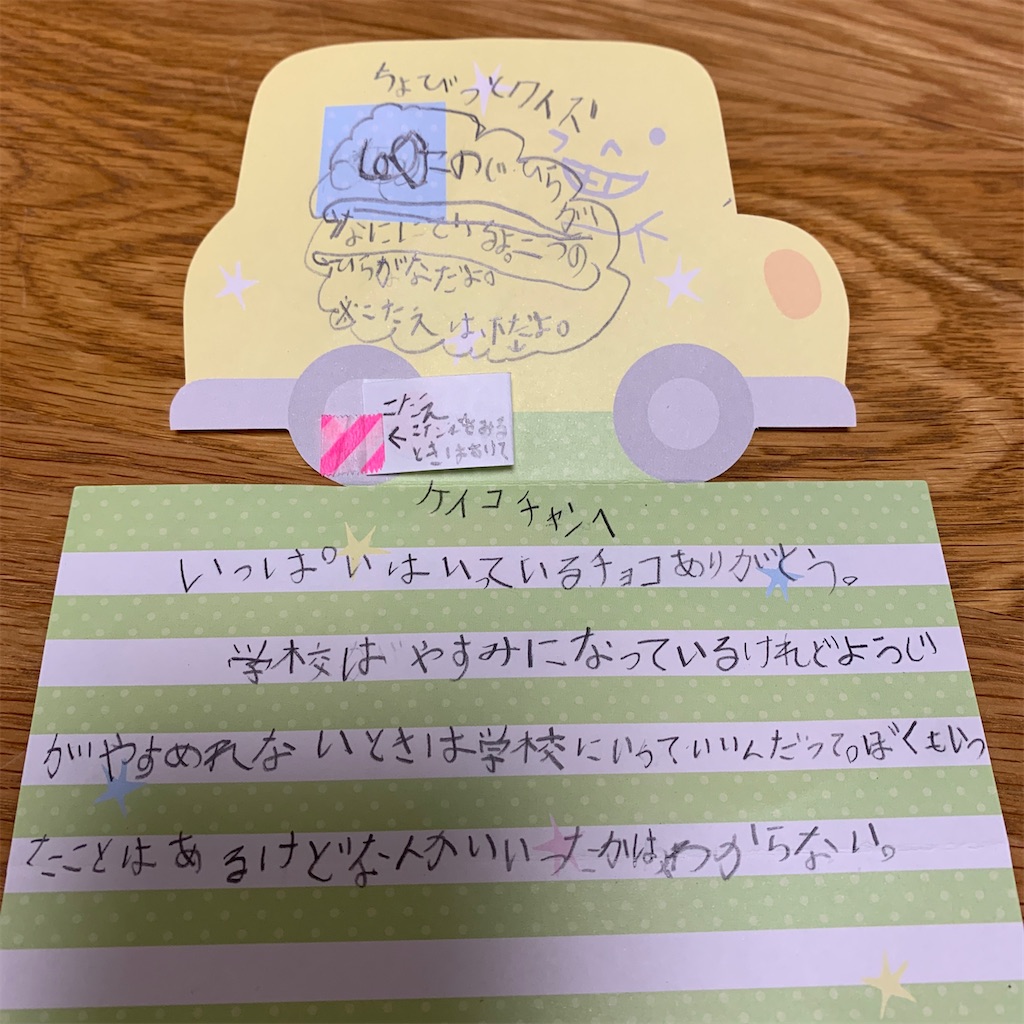 ちょびっとクイズ
このじ ひらが
なににてるよ。二つの
ひらがなだよ。
※こたえは、下だよ。↓
こたえ
←こたえをみる
ときはあけて
ケイコチャンへ
いっぱいはいっているチョコありがとう。
学校はやすみになっているけれどようじ
がやすめれないときは学校にいっていいんだって。ぼくもいっ
たことはあるけどな人かいいったかはわからない。